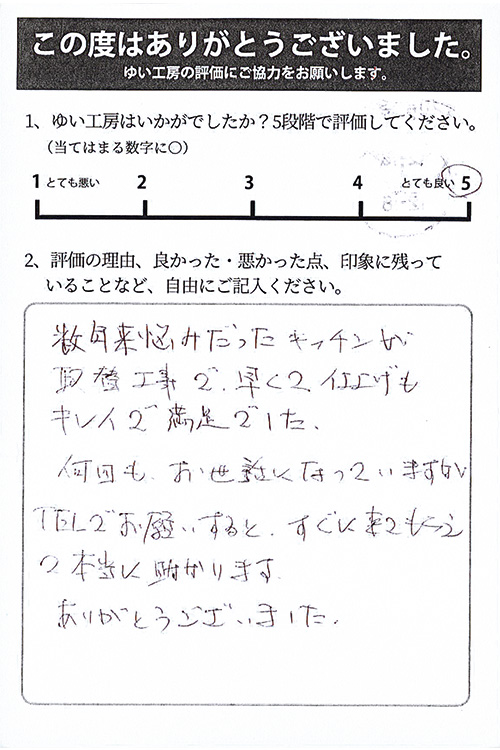 この度はありがとうございました。
ゆい工房の評価にご協力をお願いします。
1、ゆい工房はいかがでしたか？5段階で評価してください。
（当てはまる数字に〇）
1 とても悪い 2 3 4 とても良い 5
2、評価の理由、良かった・悪かった点、印象に残って
いることなど、自由にご記入ください。
数年来悩みだったキッチンが
取替工事で、早くて、仕上げも
キレイで満足でした。
何回も、お世話になっていますが
TELでお願いすると、すぐに来てもらえ
て本当に助かります。
ありがとうございました。